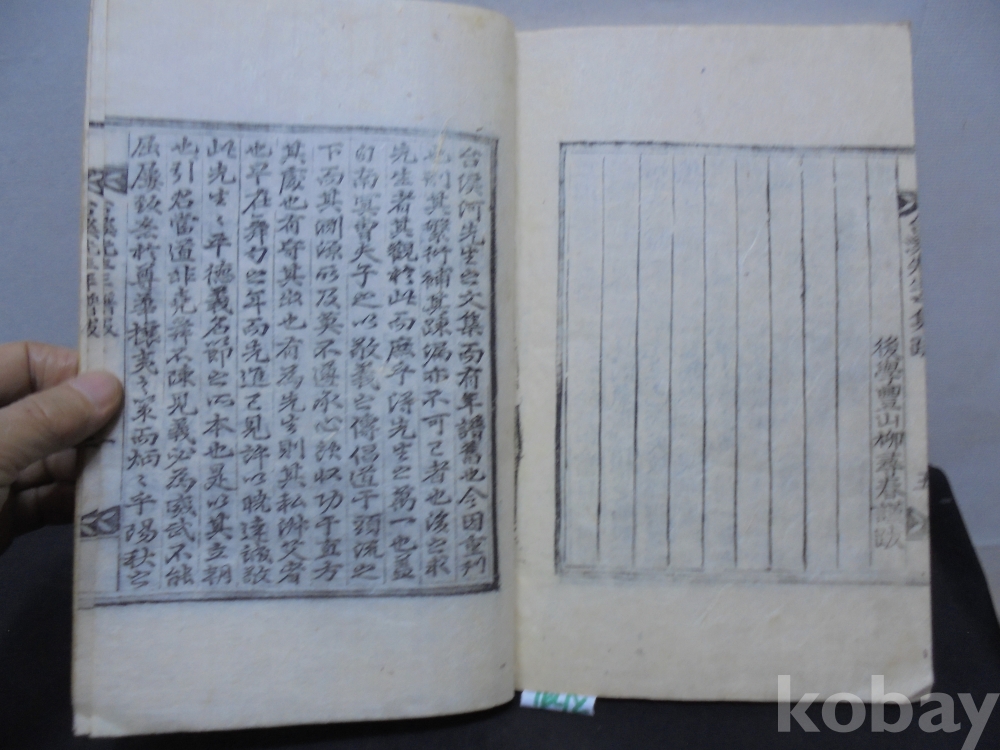 後學豊山柳尋春謹跋
台溪河先生之文集而有年譜舊也今因重刋
也刪其繁衍補其疎漏亦不可已者也後之求
先生者其觀於此而庶乎得先生之萬一也蓋
自南冥曺夫子之以敬義之傳倡道于頭流之
下而其淵源所及莫不遵承心法收功于直方
其處也有守其出也有為先生則其私淑艾者
也早在舞勺之年而先進已見許以曉達該敏
此先生之平德義名節之所本也是以其立朝
也引君當道非堯舜不陳見義必為威武不能
屈屢致矣於尊華攘夷之案而炳之乎陽秋之
kobay